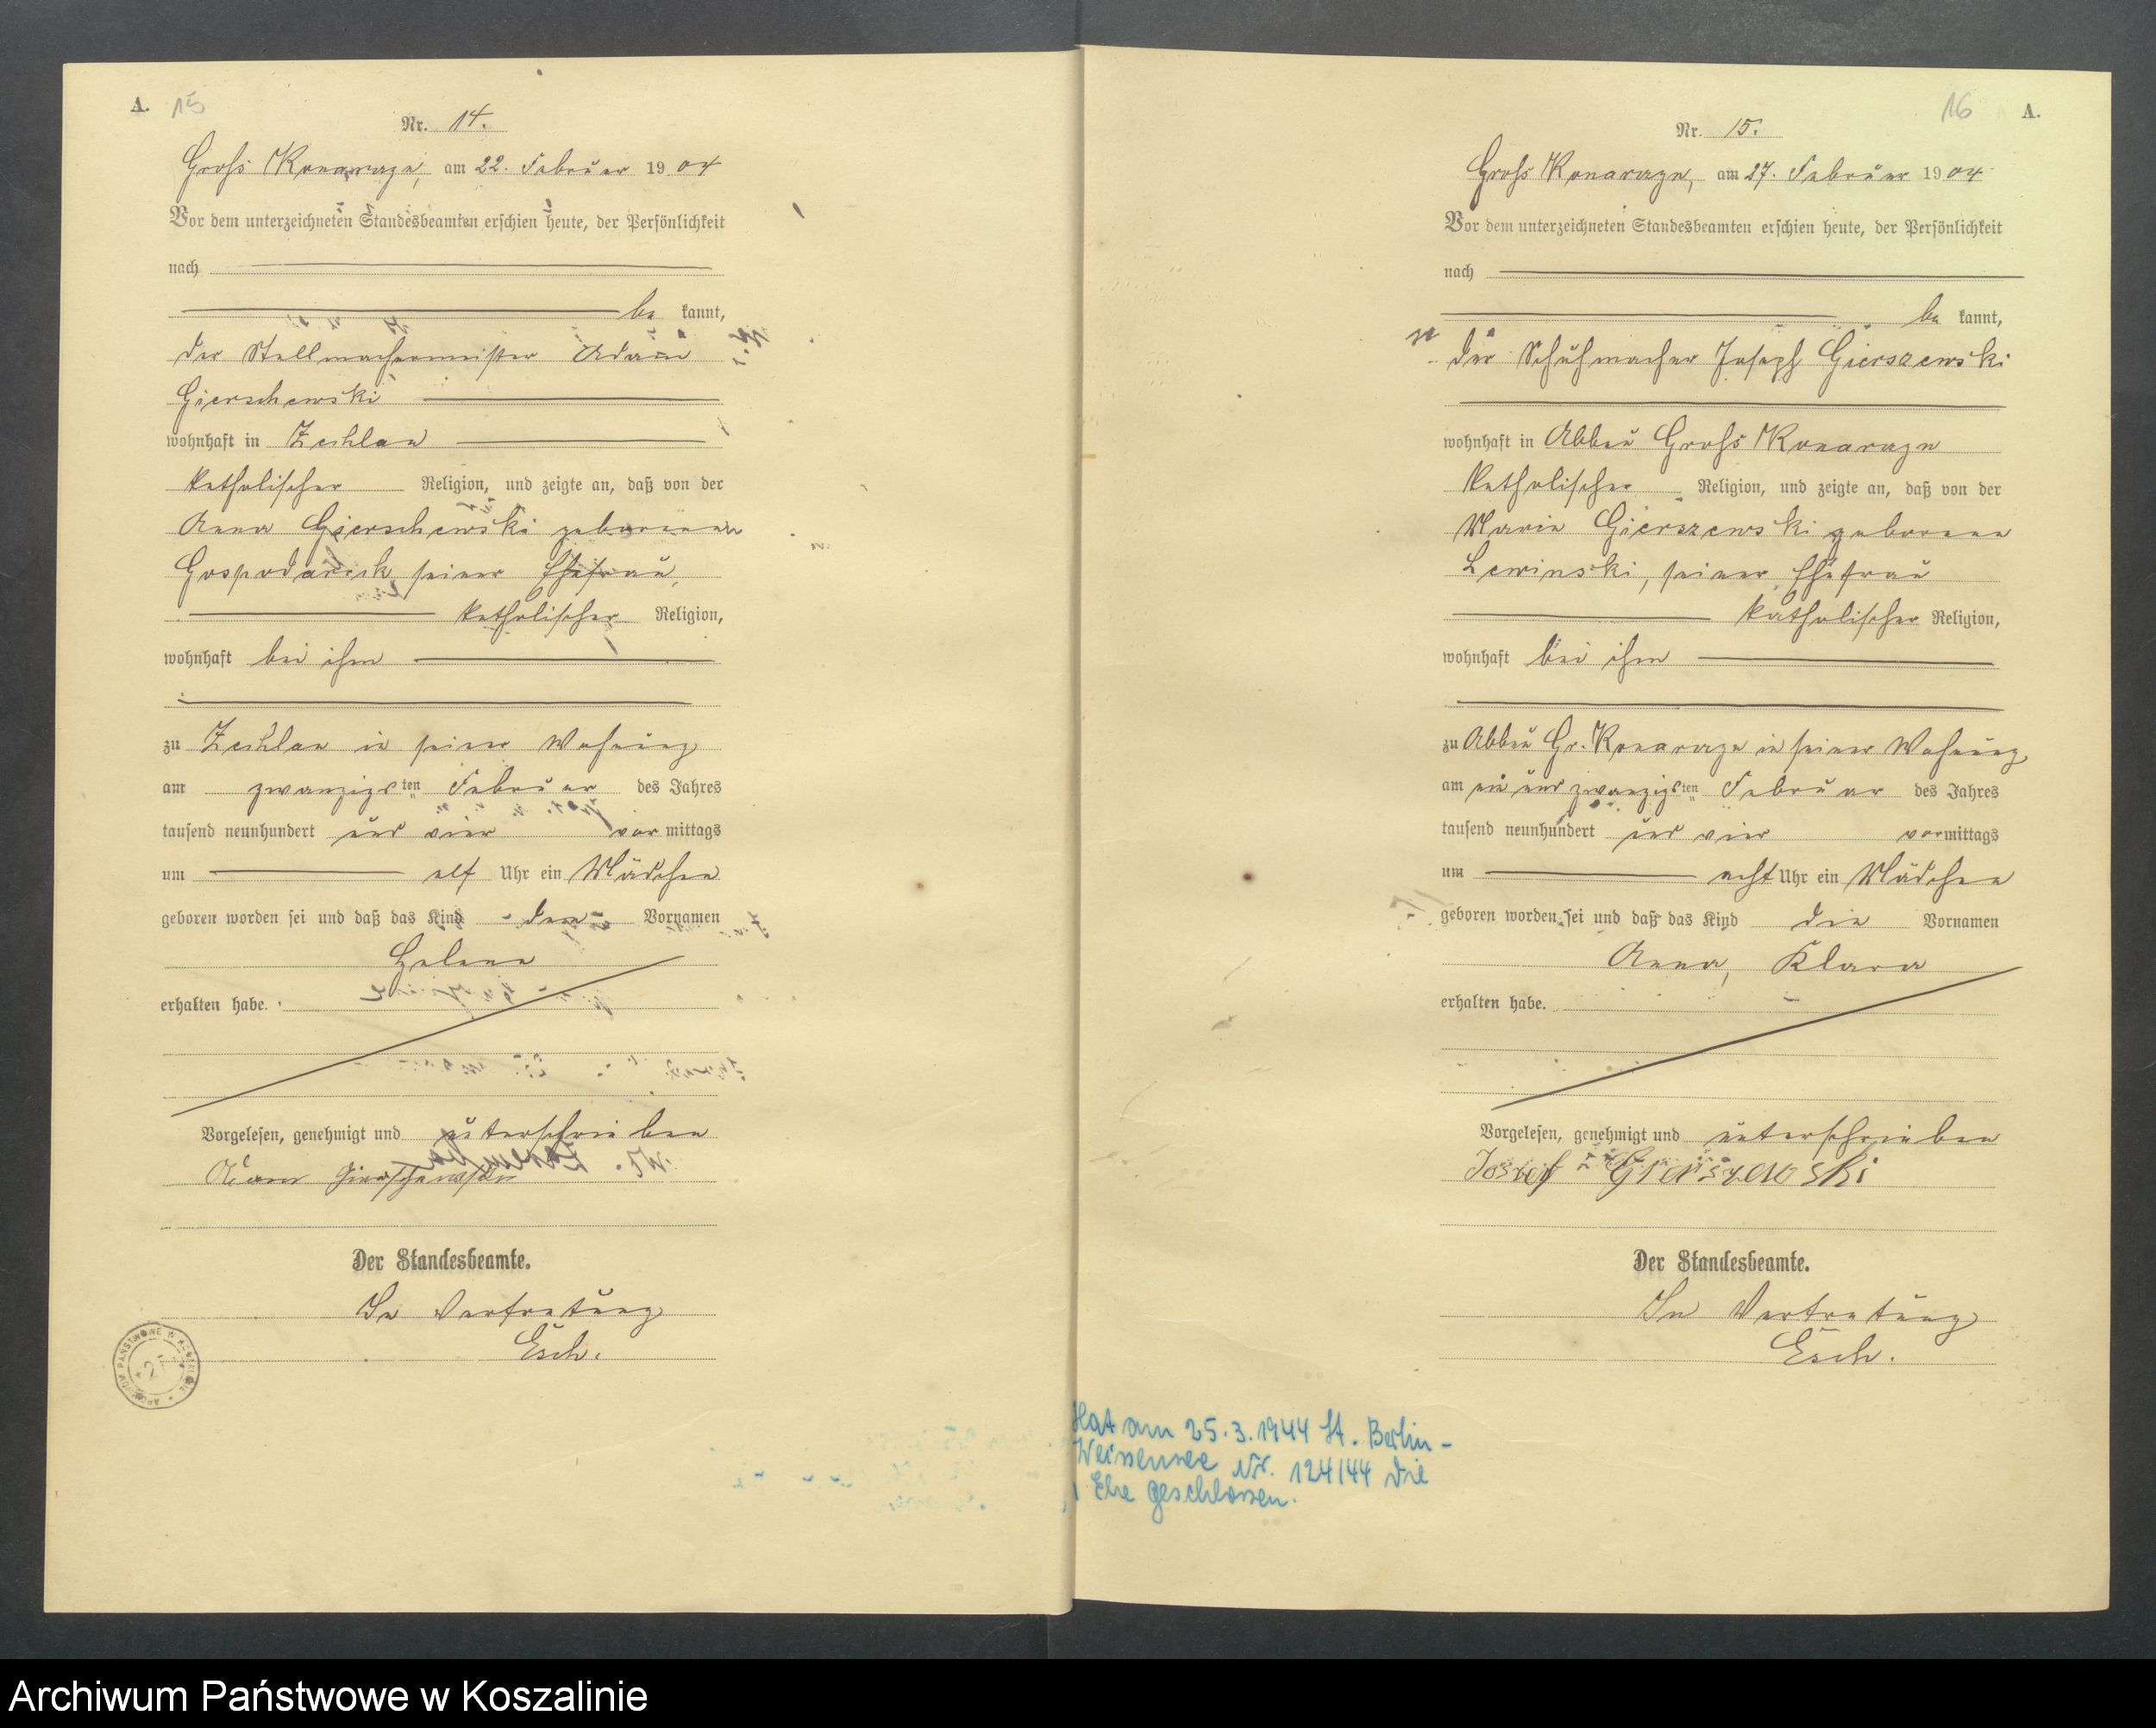 A. 15
Nr. 14.
Gross Konarzyn, am 22. Februar 1904
Vor dem unterzeichneten Standesbeamten erschien heute, der Persönlichkeit
nach
be kannt,
der Stellmachermeister Adam
Gierschewski
wohnhaft in Zechlau
katholischer Religion, und zeigte an, daß von der
Anna Gierschewski geborenen
seiner Ehefrau,
katholischer Religion,
wohnhaft bei ihm
zu Zechlau in seiner Wohnung
am zwanzigsten Februar des Jahres
tausend neunhundert und vier vor mittags
um elf Uhr ein Mädchen
geboren worden sei und daß das Kind den Vornamen
Helene
erhalten habe.
Vorgelesen, genehmigt und unterschrieben
Adam Gierschewski
Der Standesbeamte.
In Vertretung
Esch.
16 A.
Nr. 15.
Gross Konarzyn, am 27. Februar 1904
Vor dem unterzeichneten Standesbeamten erschien heute, der Persönlichkeit
nach
be kannt,
der Schuhmacher Joseph Gierszewski
wohnhaft in Abbau Gross Konarzyn
katholischer Religion, und zeigte an, daß von der
Maria Gierszewski geborene
Lewinski, seiner Ehefrau
katholischer Religion,
wohnhaft bei ihm
zu Abbau Gr. Konarzyn in seiner Wohnung
am ein und zwanzigsten Februar des Jahres
tausend neunhundert und vier vormittags
um acht Uhr ein Mädchen
geboren worden sei und daß das Kind die Vornamen
Anna, Klara
erhalten habe.
Vorgelesen, genehmigt und unterschrieben
Josef Gierszewski
Der Standesbeamte.
In Vertretung
Esch.
Hat am 25.3.1944 St. Berlin-
Weissensee Nr. 124/44 die
1 Ehe geschlossen.
Archiwum Państwowe w Koszalinie